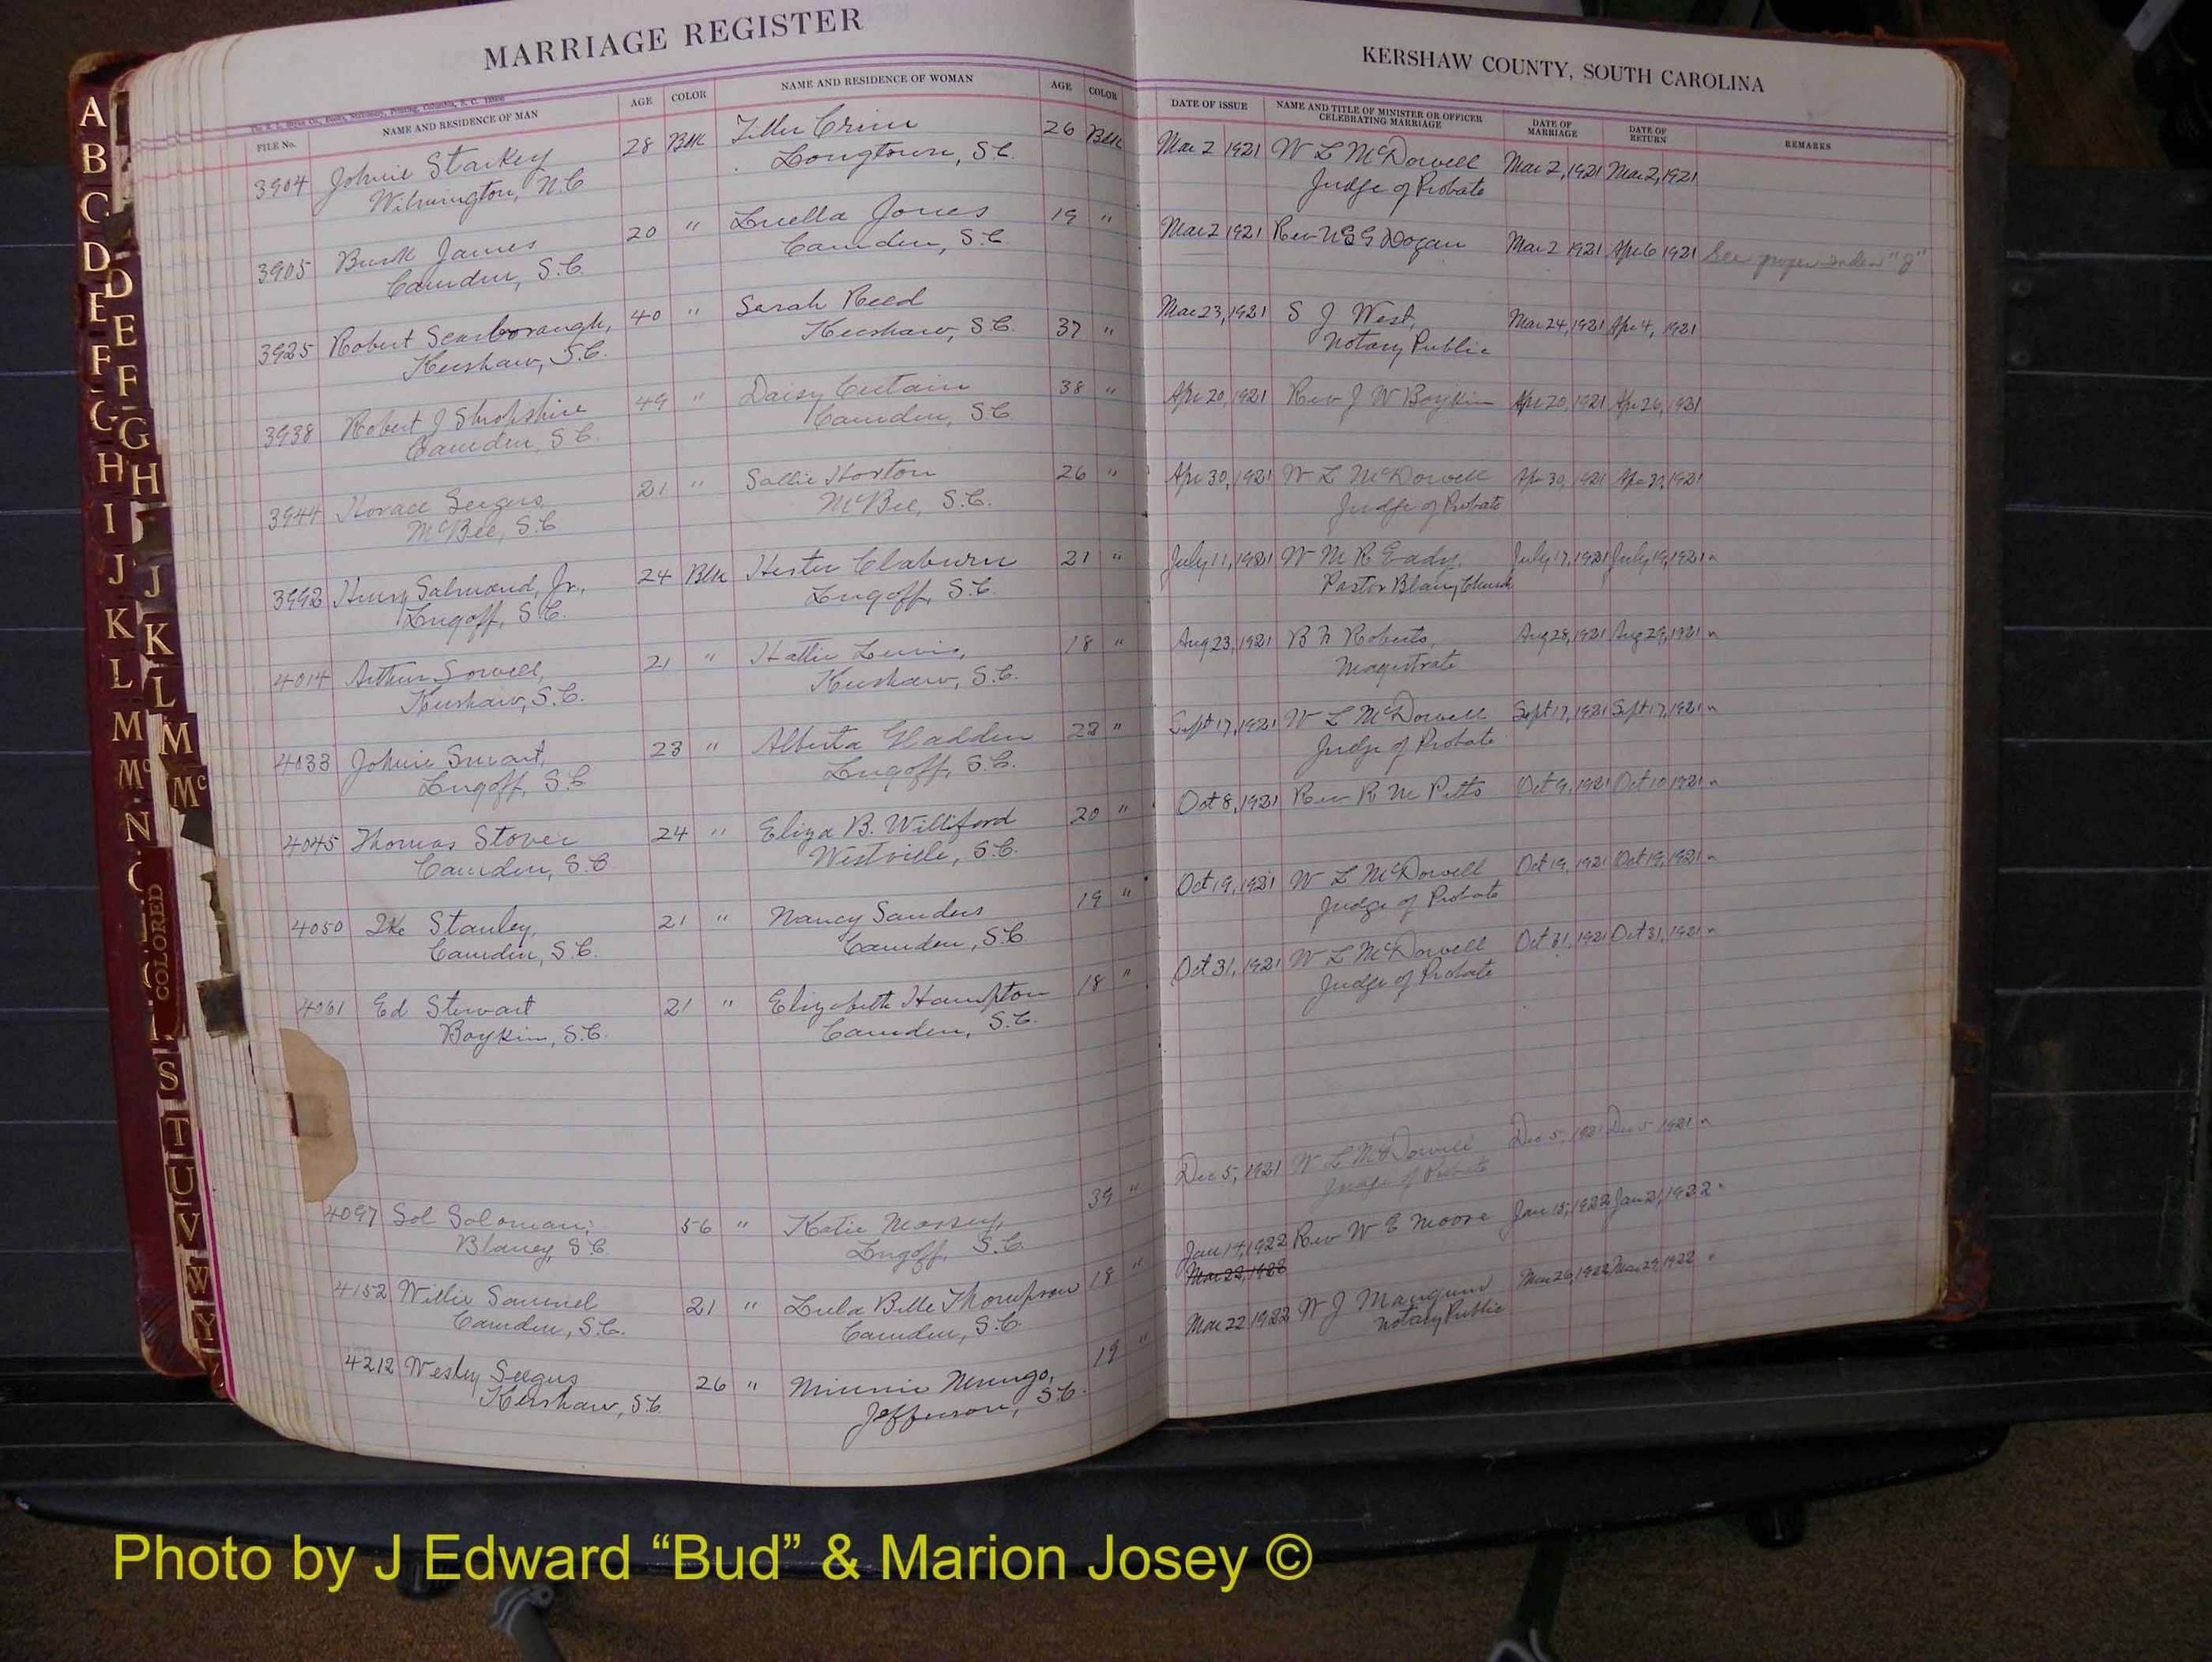 MARRIAGE REGISTER
KERSHAW COUNTY, SOUTH CAROLINA
FILE No. NAME AND RESIDENCE OF MAN AGE COLOR NAME AND RESIDENCE OF WOMAN AGE COLOR DATE OF ISSUE NAME AND TITLE OF MINISTER OR OFFICER CELEBRATING MARRIAGE DATE OF MARRIAGE DATE OF RETURN REMARKS
3904 Johnie Starkey 28 Blk Crim 26 Blk Mar 2 1921 W L McDowell Mar 2, 1921 Mar 2, 1921
Wilmington, N.C Longtown, S.C. Judge of Probate
3905 James 20 " Luella Jones 19 " Mar 2 1921 Rev Dogan Mar 2 1921 Apr 6 1921 See proper index "J"
Camden, S.C. Camden, S.C
3925 Robert Scarborough, 40 " Sarah Reed 37 " Mar 23, 1921 S J West, Mar 24, 1921 Apr 4, 1921
Kershaw, S.C. Kershaw, S.C. Notary Public
3938 Robert J Shropshire 49 " Daisy 38 " Apr 20, 1921 Rev J W Boykin Apr 20, 1921 Apr 26, 1921
Camden, S.C. Camden, S.C
3944 Horace Seegars, 21 " Sallie Horton 26 " Apr 30, 1921 W L McDowell Apr 30, 1921 1921
McBee, S.C McBee, S.C. Judge of Probate
3992 Henry Salmond, Jr., 24 Blk Hester Claburn 21 " July 11, 1921 W M R Eady, July 17, 1921 July 19, 1921
Lugoff, S.C. Lugoff, S.C. Pastor Blaney Church
4014 Arthur Sowell, 21 " Hattie Lewis, 18 " Aug 23, 1921 B N Roberts, Aug 28, 1921 Aug 29, 1921
Kershaw, S.C. Kershaw, S.C. Magistrate
4033 Johnie Smart, 23 " Alberta Gladden 22 " Sept 17, 1921 W L McDowell Sept 17, 1921 Sept 17, 1921
Lugoff, S.C Lugoff, S.C. Judge of Probate
4045 Thomas Stover 24 " Eliza B. Williford 20 " Oct 8, 1921 Rev R M Pitts Oct 9, 1921 Oct 10, 1921
Camden, S.C Westville, S.C.
4050 Ike Stanley, 21 " Nancy Sanders 19 " Oct 19, 1921 W L McDowell Oct 19, 1921 Oct 19, 1921
Camden, S.C. Camden, S.C. Judge of Probate
4061 Ed Stewart 21 " Elizabeth Hampton 18 " Oct 31, 1921 W L McDowell Oct 31, 1921 Oct 31, 1921
Boykin, S.C. Camden, S.C. Judge of Probate
4097 Sol Soloman, 56 " Katie Massey, 39 " Dec 5, 1921 W L McDowell Dec 5, 1921 Dec 5 1921
Blaney, S.C. Lugoff, S.C. Judge of Probate
4152 Willie Samuel 21 " Lula Belle Thompson 18 " Jan 14, 1922 Rev W E Moore Jan 15, 1922 Jan 21, 1922
Camden, S.C. Camden, S.C.
4212 Wesley Seegus 26 " Minnie Mungo, 19 " Mar 22 1922 W J Mangum Mar 26, 1922 Mar 29, 1922
Kershaw, S.C. Jefferson, S.C. Notary Public
A
B
C
D
E
F
G
H
I
J
K
L
M
Mc
N
D
E
F
G
H
J
K
L
M
Mc
COLORED
S
T
U
V
W
Y
Photo by J Edward “Bud” & Marion Josey ©